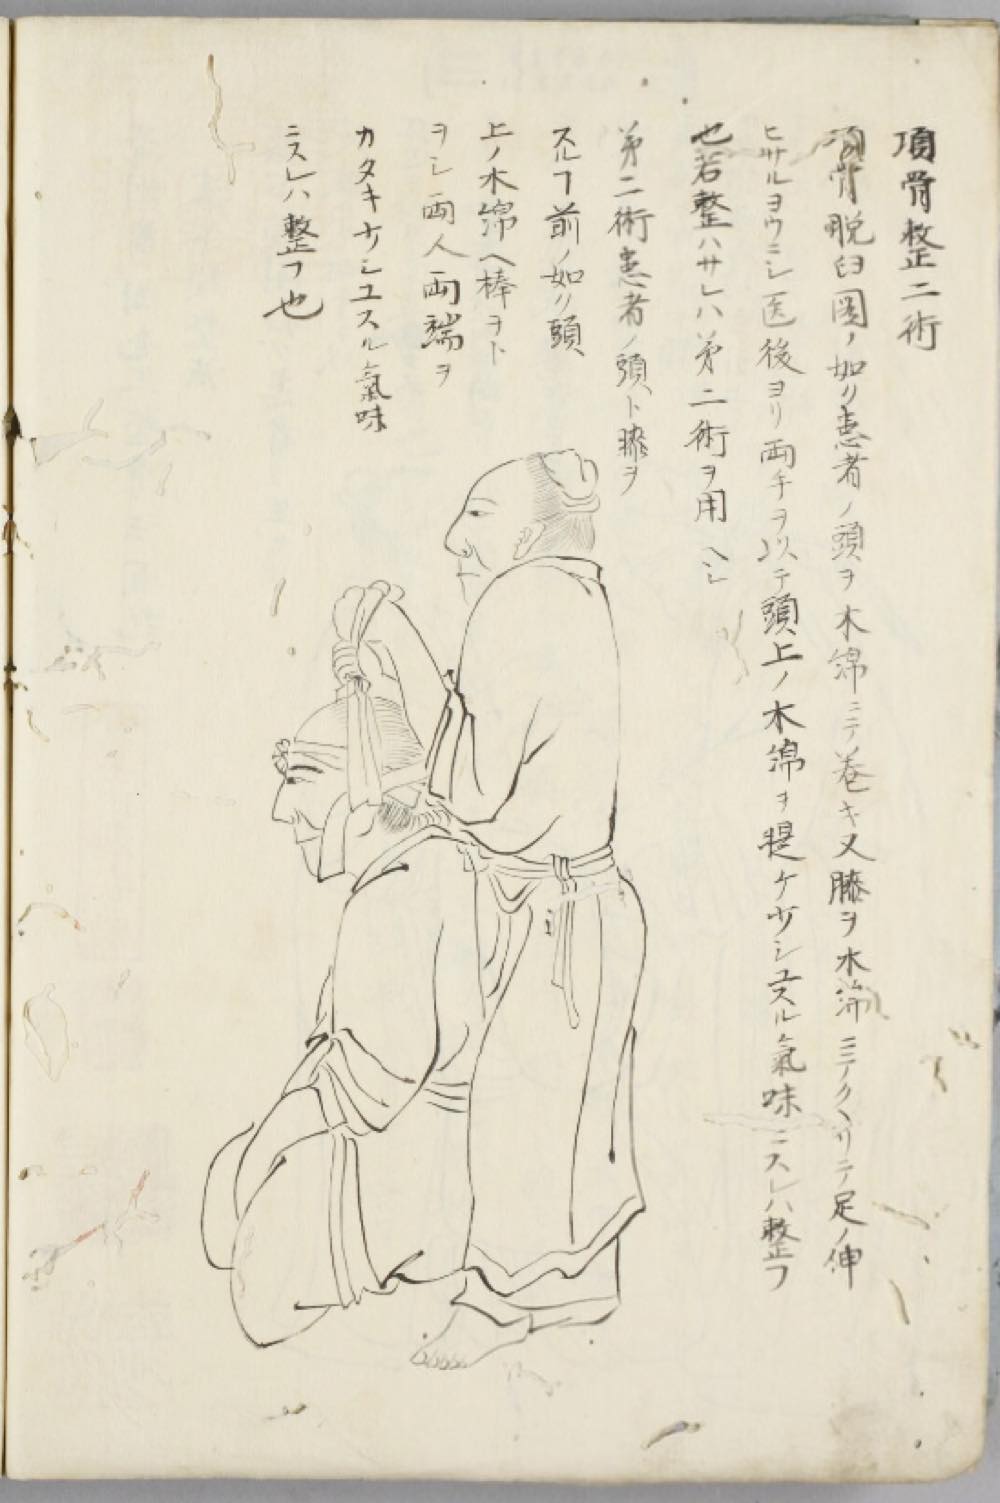 項骨整二術
項骨脱臼圖ノ如リ患者ノ頭ヲ木綿ニテノ巻キ又膝ヲ木綿ニテクヽリテ足ノ伸
ヒサルヨウニシ医後ヨリ両手ヲ以テ頭上ノ木綿ヲ提ケサシユスル氣味ニスレハ整フ
也若整ハサレハ第二術ヲ用ヘシ
第二術患者ノ頭ト膝ヲ
スルフ前ノ如リ頭
上ノ木綿ヘ棒ヲト
ヲシ両人両端ヲ
カタキサシユスル氣味
ニスレハ整フ也